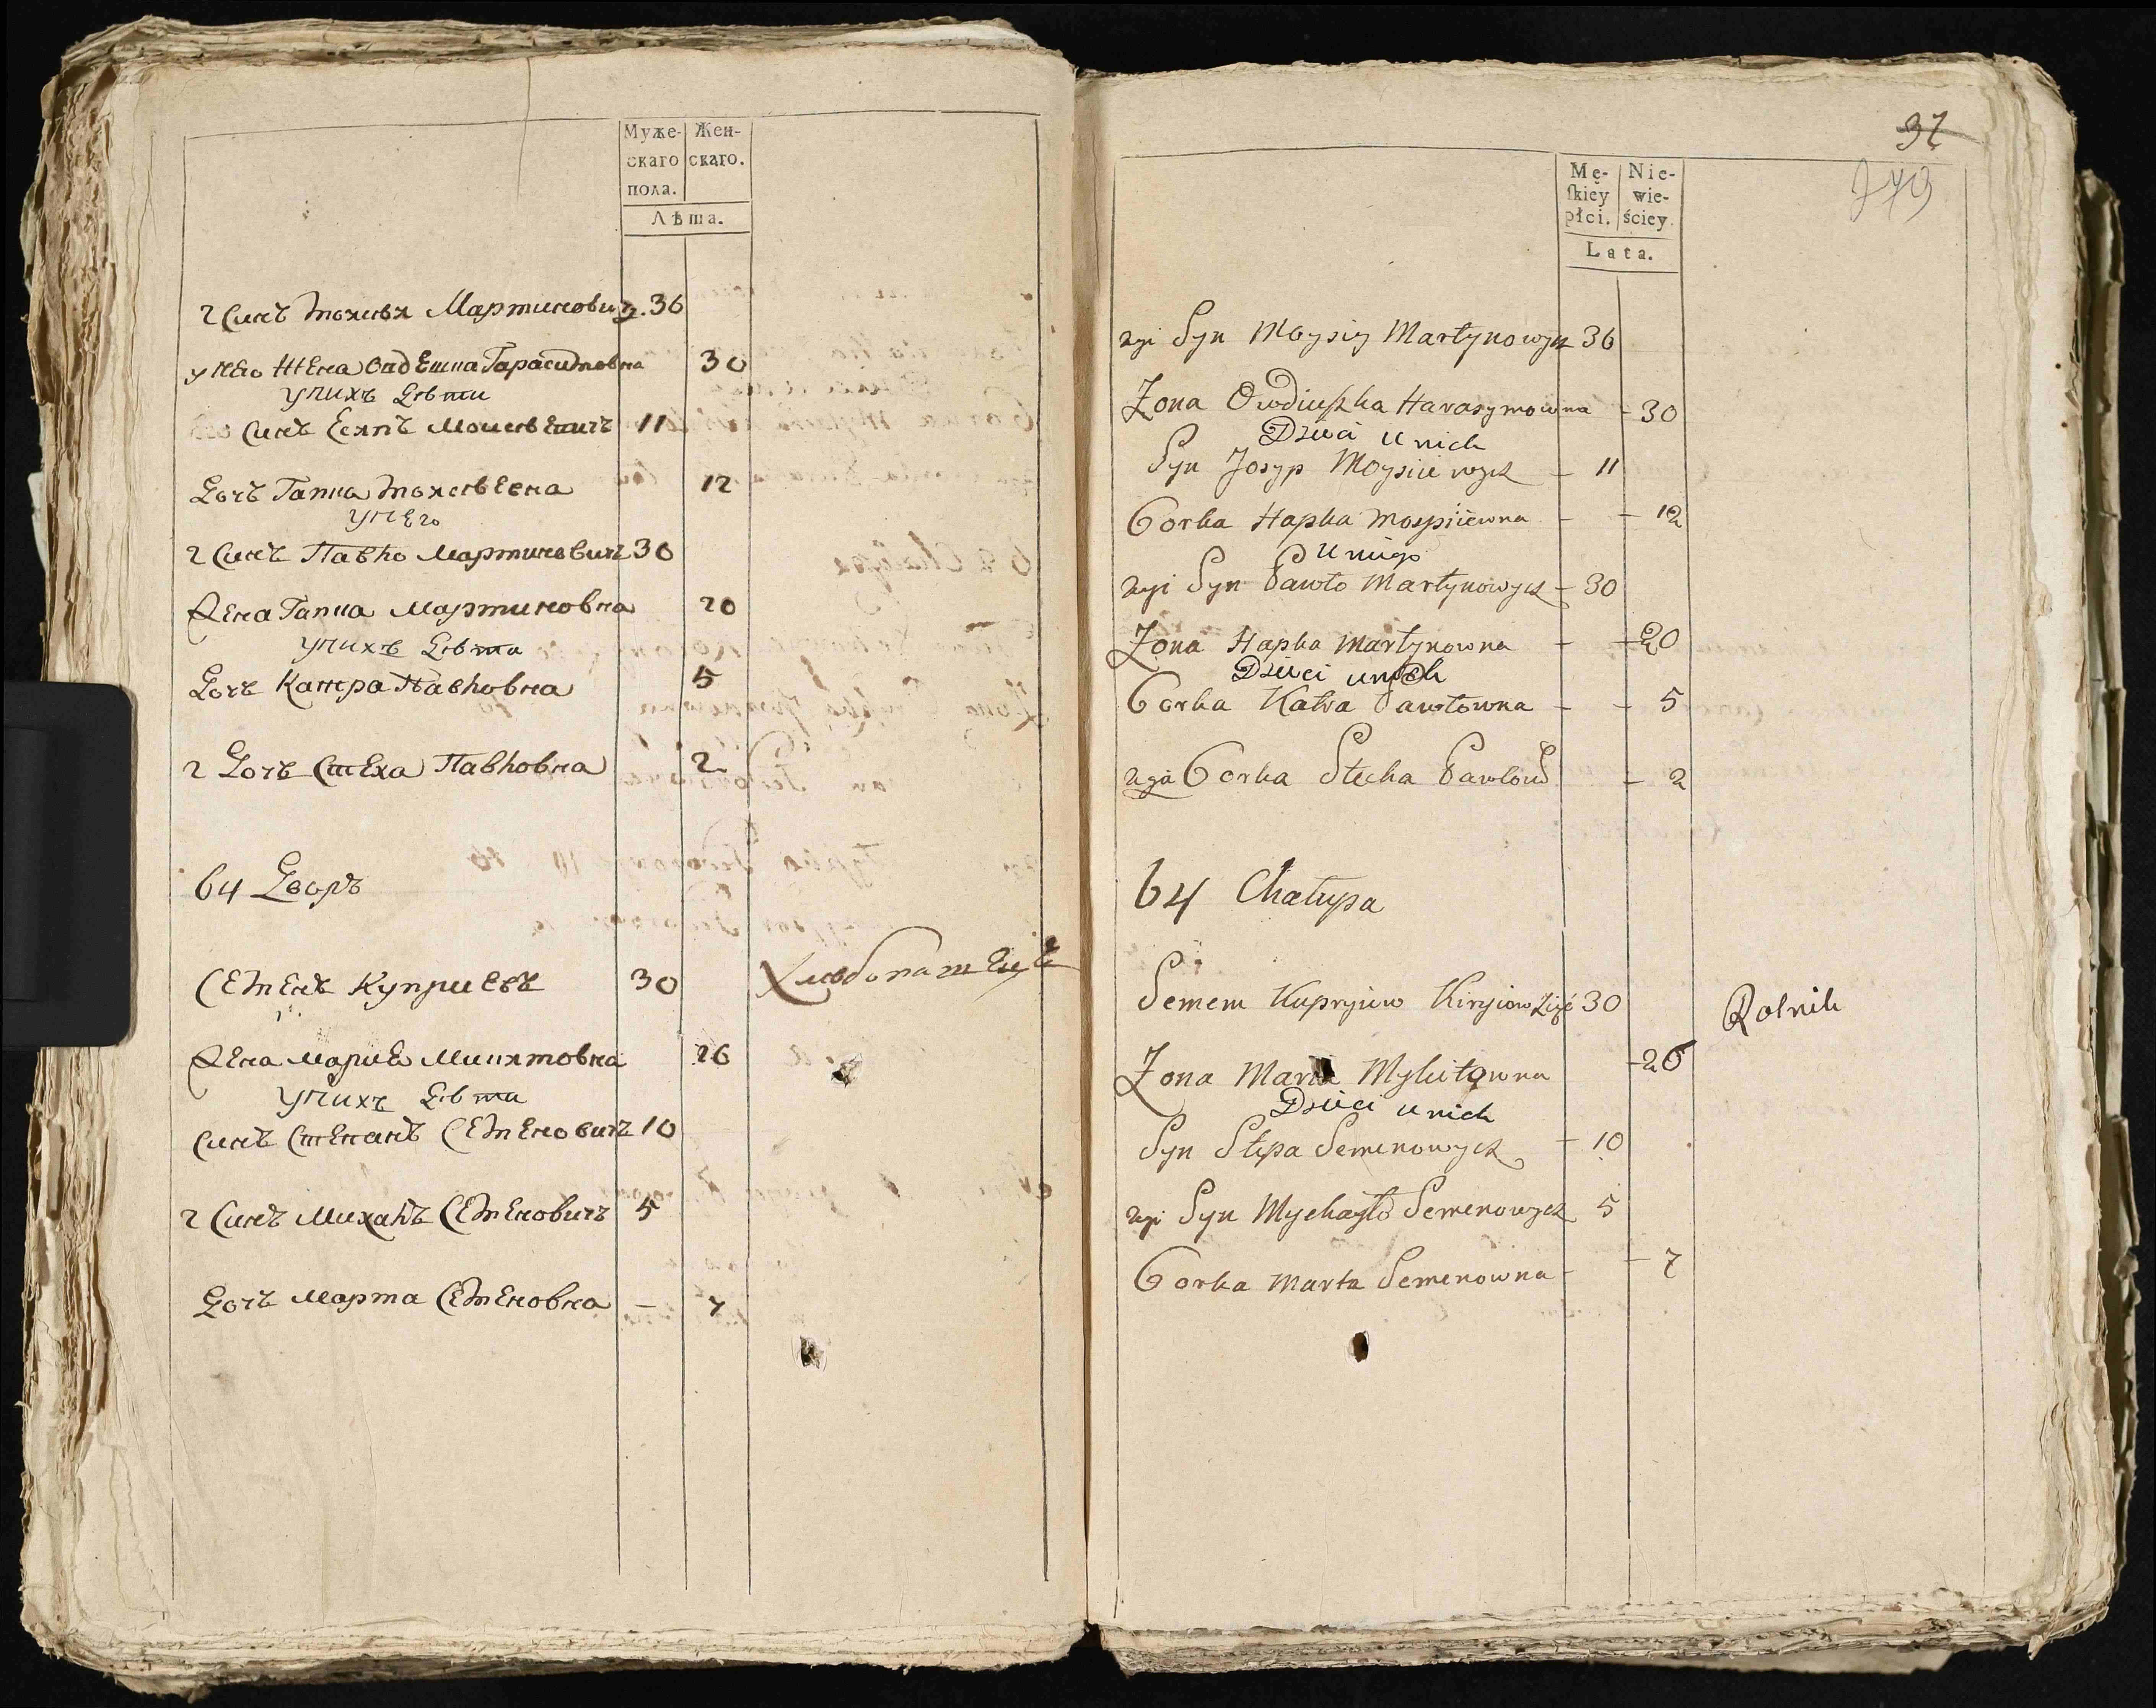 Муже- Жен-
скаго скаго.
пола.
Лѣта.
2 Синъ Моисѣй Мартиновичъ. 36
у него Жена Овдешка Гарасимовна 30
у нихъ Дѣти
Синъ Есипъ Моисѣевичъ 11
Дочъ Гапка Моисѣевна 12
у него
2 Синъ Павло Мартиновичъ 30
Жена Гапка Мартиновна 20
у нихъ Дѣти
Дочъ Катра Павловна 5
2 Дочъ Стеха Павловна 2
64 Дворъ
Семенъ Куприевъ 30 Хлѣбопашецъ
Жена Мариа Микитовна 26
у нихъ Дѣти
Синъ Степанъ Семеновичъ 10
2 Синъ Михайлъ Семеновичъ 5
Дочъ Марта Семеновна — 7
37
279
Mę- Nie-
ſkiey wie-
płci. ściey.
Lata.
2gi Syn Moysiy Martynowycz 36
Zona Owdiuszka Harasymowna - 30
Dzieci u nich
Syn Josyp Moysiiewycz - 11
Corka Hapka Moysiiewna - - 12
U niego
2gi Syn Pawło Martynowycz - 30
Zona Hapka Martynowna - - 20
Dzieci u nich
Corka Katra Pawłowna - - 5
2ga Corka Stecha Pawłow - 2
64 Chałupa
Semem Kupryiew Kiryiow Zięć 30 Rolnik
Zona Maria Mykitowna - 26
Dzieci u nich
Syn Stepa Semenowycz - 10
2gi Syn Mychayło Semenowycz 5
Corka Marta Semenowna - - 7